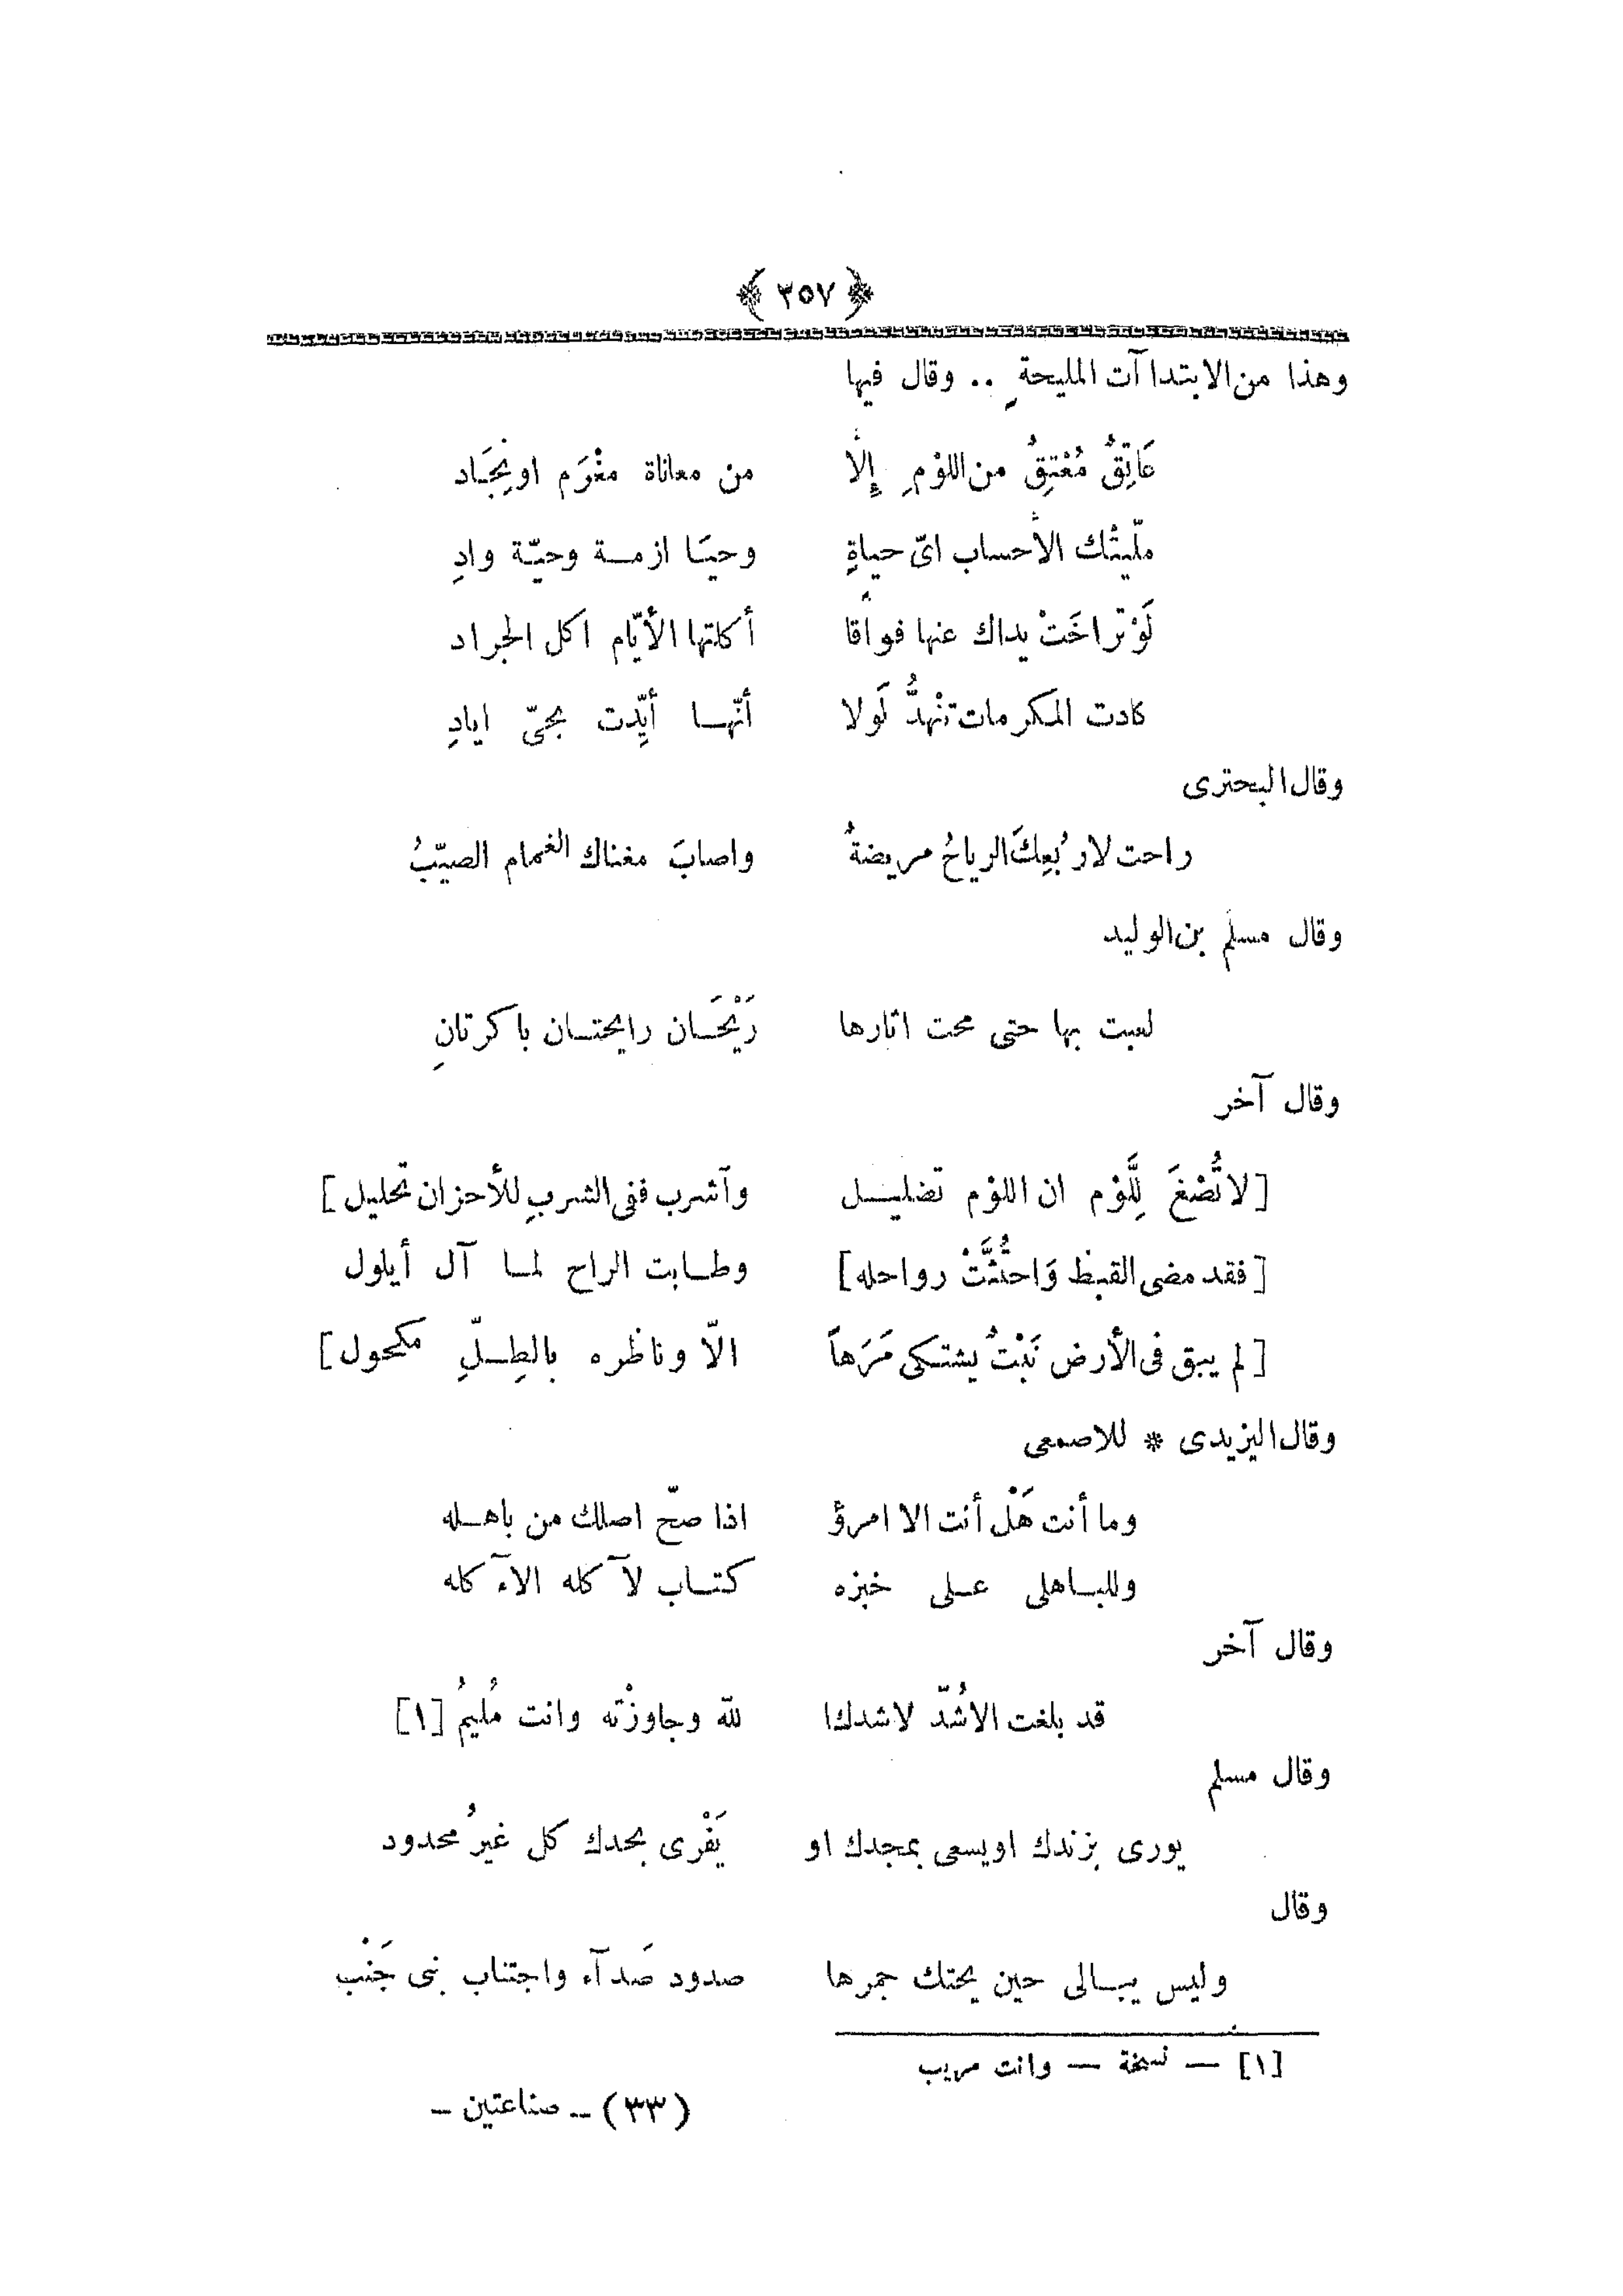 ﴿ ٢٥٧ ﴾
وهذا من الابتداآت المليحة .. وقال فيها
عَاتِقٌ مُعْتِقٌ من اللوْمِ إلّا من معاناة مغْرَم او نِجَاد
ملّيتْك الأحساب اىّ حياةٍ وحيَا ازمة وحيّة وادِ
لَوْ تراخَتْ يداك عنها فواقا أكلتها الأيّام اكل الجراد
كادت المكرمات تنْهدُّ لَولا أنّها أيِّدت بحىّ ايادِ
وقال البحترى
راحت لاربُعِكَ الرياحُ مريضةً واصابَ مغناك الغمام الصيّبُ
وقال مسلم بن الوليد
لعبت بها حتى محت اثارها رَيْحَان رايحتان باكرتانِ
وقال آخر
[لا تُصْغَ لِلَّوْم ان اللوْم تضليل وآشرب ففى الشربِ للأحزان تحليل]
[فقد مضى القيظ وَاحتُثَّتْ رواحله] وطابت الراح لما آل أيلول
[لم يبق فى الأرض نَبْتٌ يشتكى مَرَهاً الّا وناظره بالطِلّ مكحول]
وقال اليزيدى * للاصمعى
وما أنت هَلْ أنت الا امرؤ اذا صحّ اصلك من باهله
وللباهلى على خبزه كتاب لآكله الآءكله
وقال آخر
قد بلغت الاشُدّ لاشدك ا لله وجاوزْته وانت مُليمُ [١]
وقال مسلم
يورى بزندك او يسعى بمجدك او يَفْرى بحدك كل غيرُ محدود
وقال
وليس يبالى حين يحتك جمرها صدود صَدآء واجتناب بنى جَنْب
[١] — نسخة — وانت مريب
(٣٣) – صناعتين –